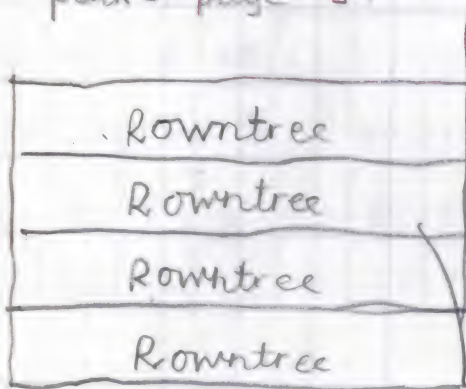 Rowntree
Rowntree
Rowntree
Rowntree